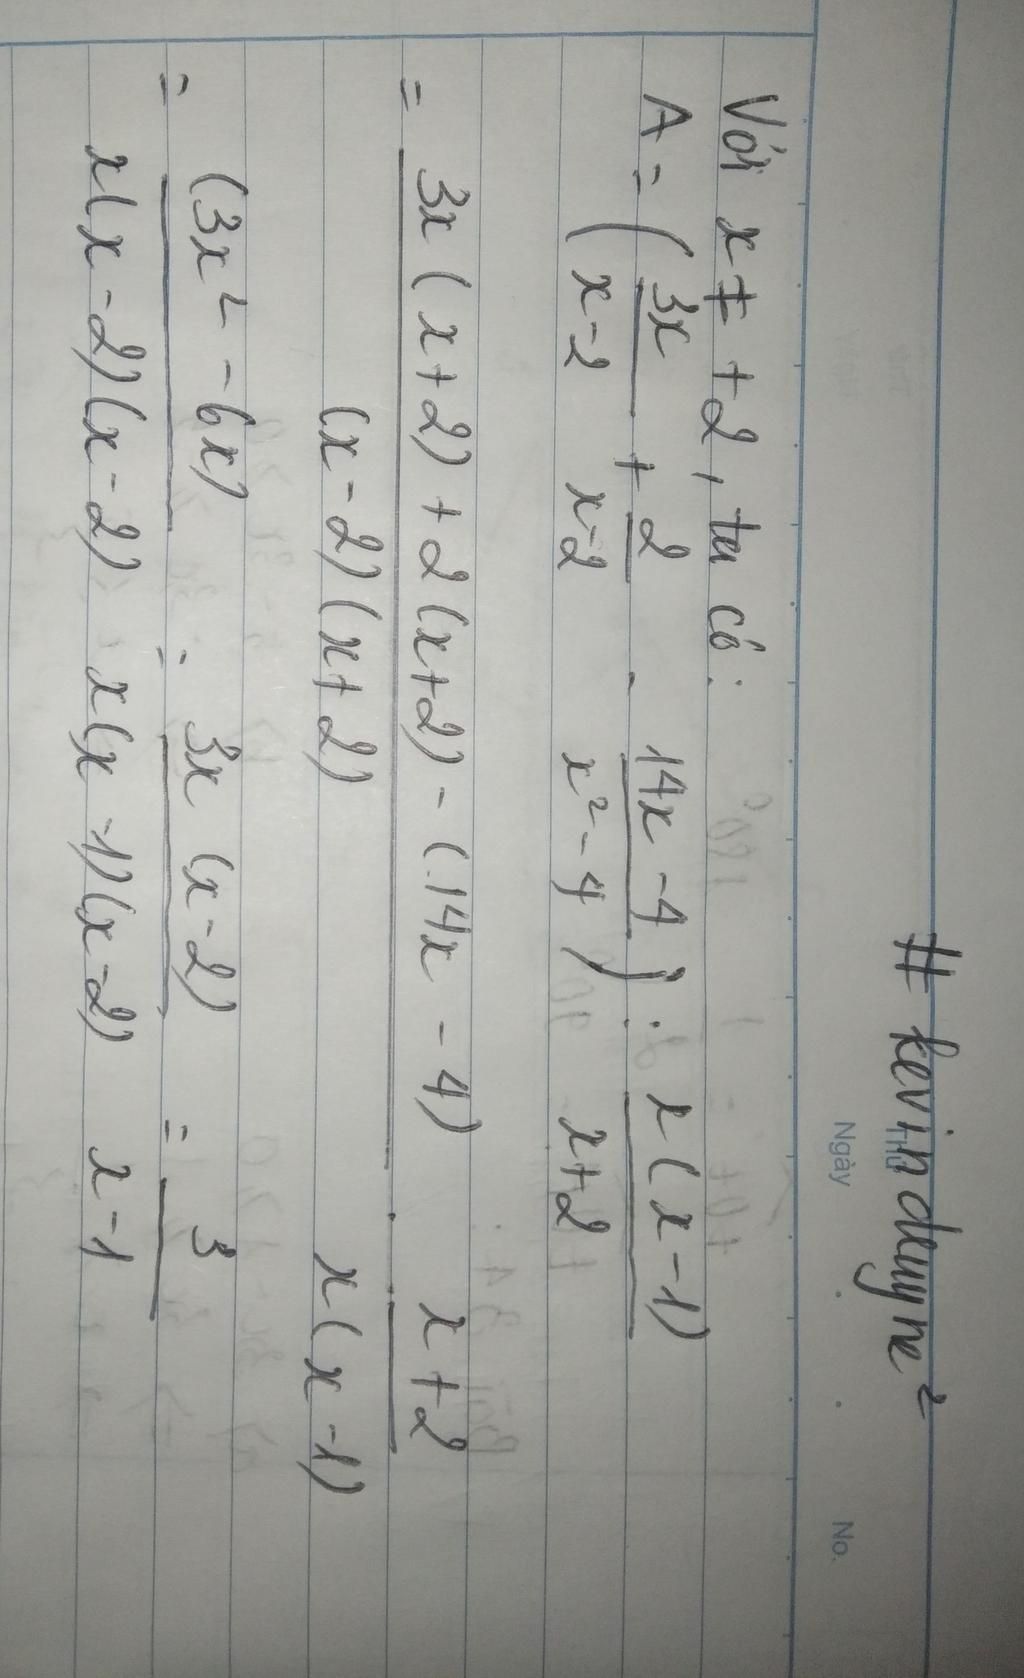 # kevindeuyne²
Thứ
Ngày . . No.
Với x ≠ +2, ta có:
A = ( 3x/x-2 + 2/x-2 - 14x-4/x²-4 ) : x(x-1)/x+2
= 3x(x+2)+2(x+2)-(14x-4)/(x-2)(x+2) . x+2/x(x-1)
= (3x²-6x)/x(x-2)(x-2) = 3x(x-2)/x(x-1)(x-2) = 3/x-1